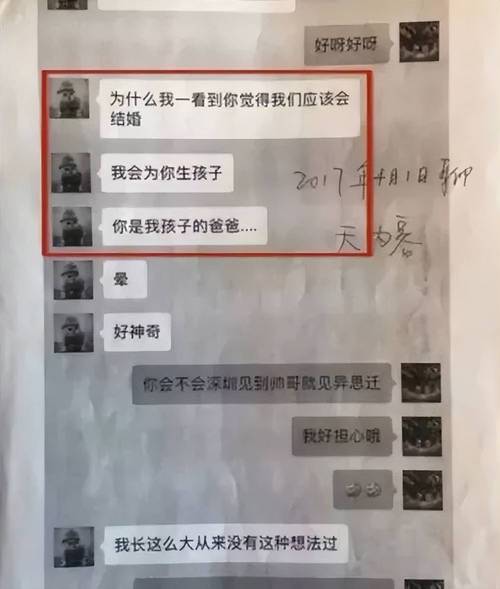 好呀好呀
为什么我一看到你觉得我们应该会
结婚
我会为你生孩子
2017年4月1日聊
天内容
你是我孩子的爸爸....
晕
好神奇
你会不会深圳见到帅哥就见异思迁
我好担心哦
我长这么大从来没有这种想法过